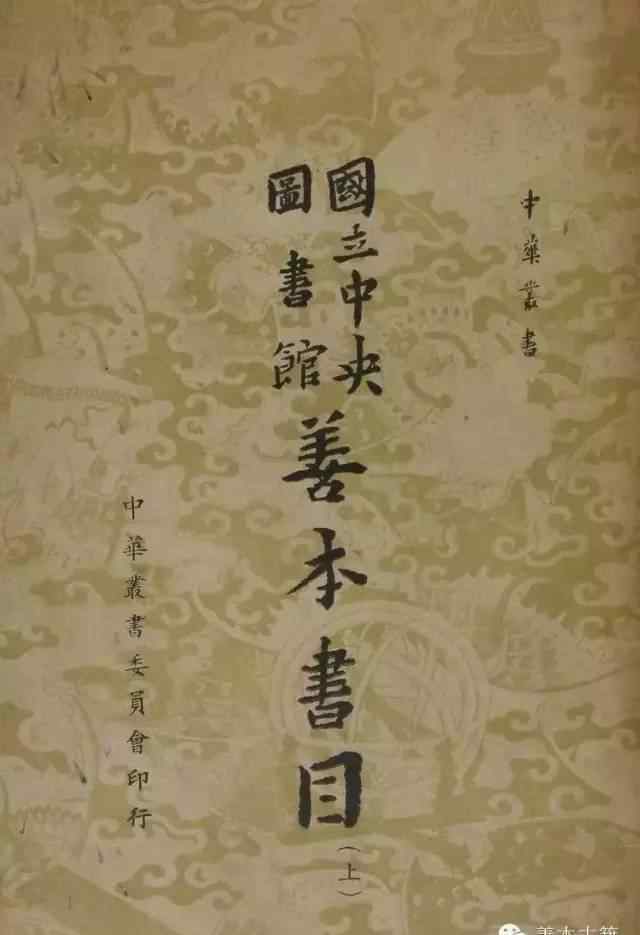 中華叢書
國立中央
圖書館
善本書目
（上）
中華叢書委員會印行
善本古籍